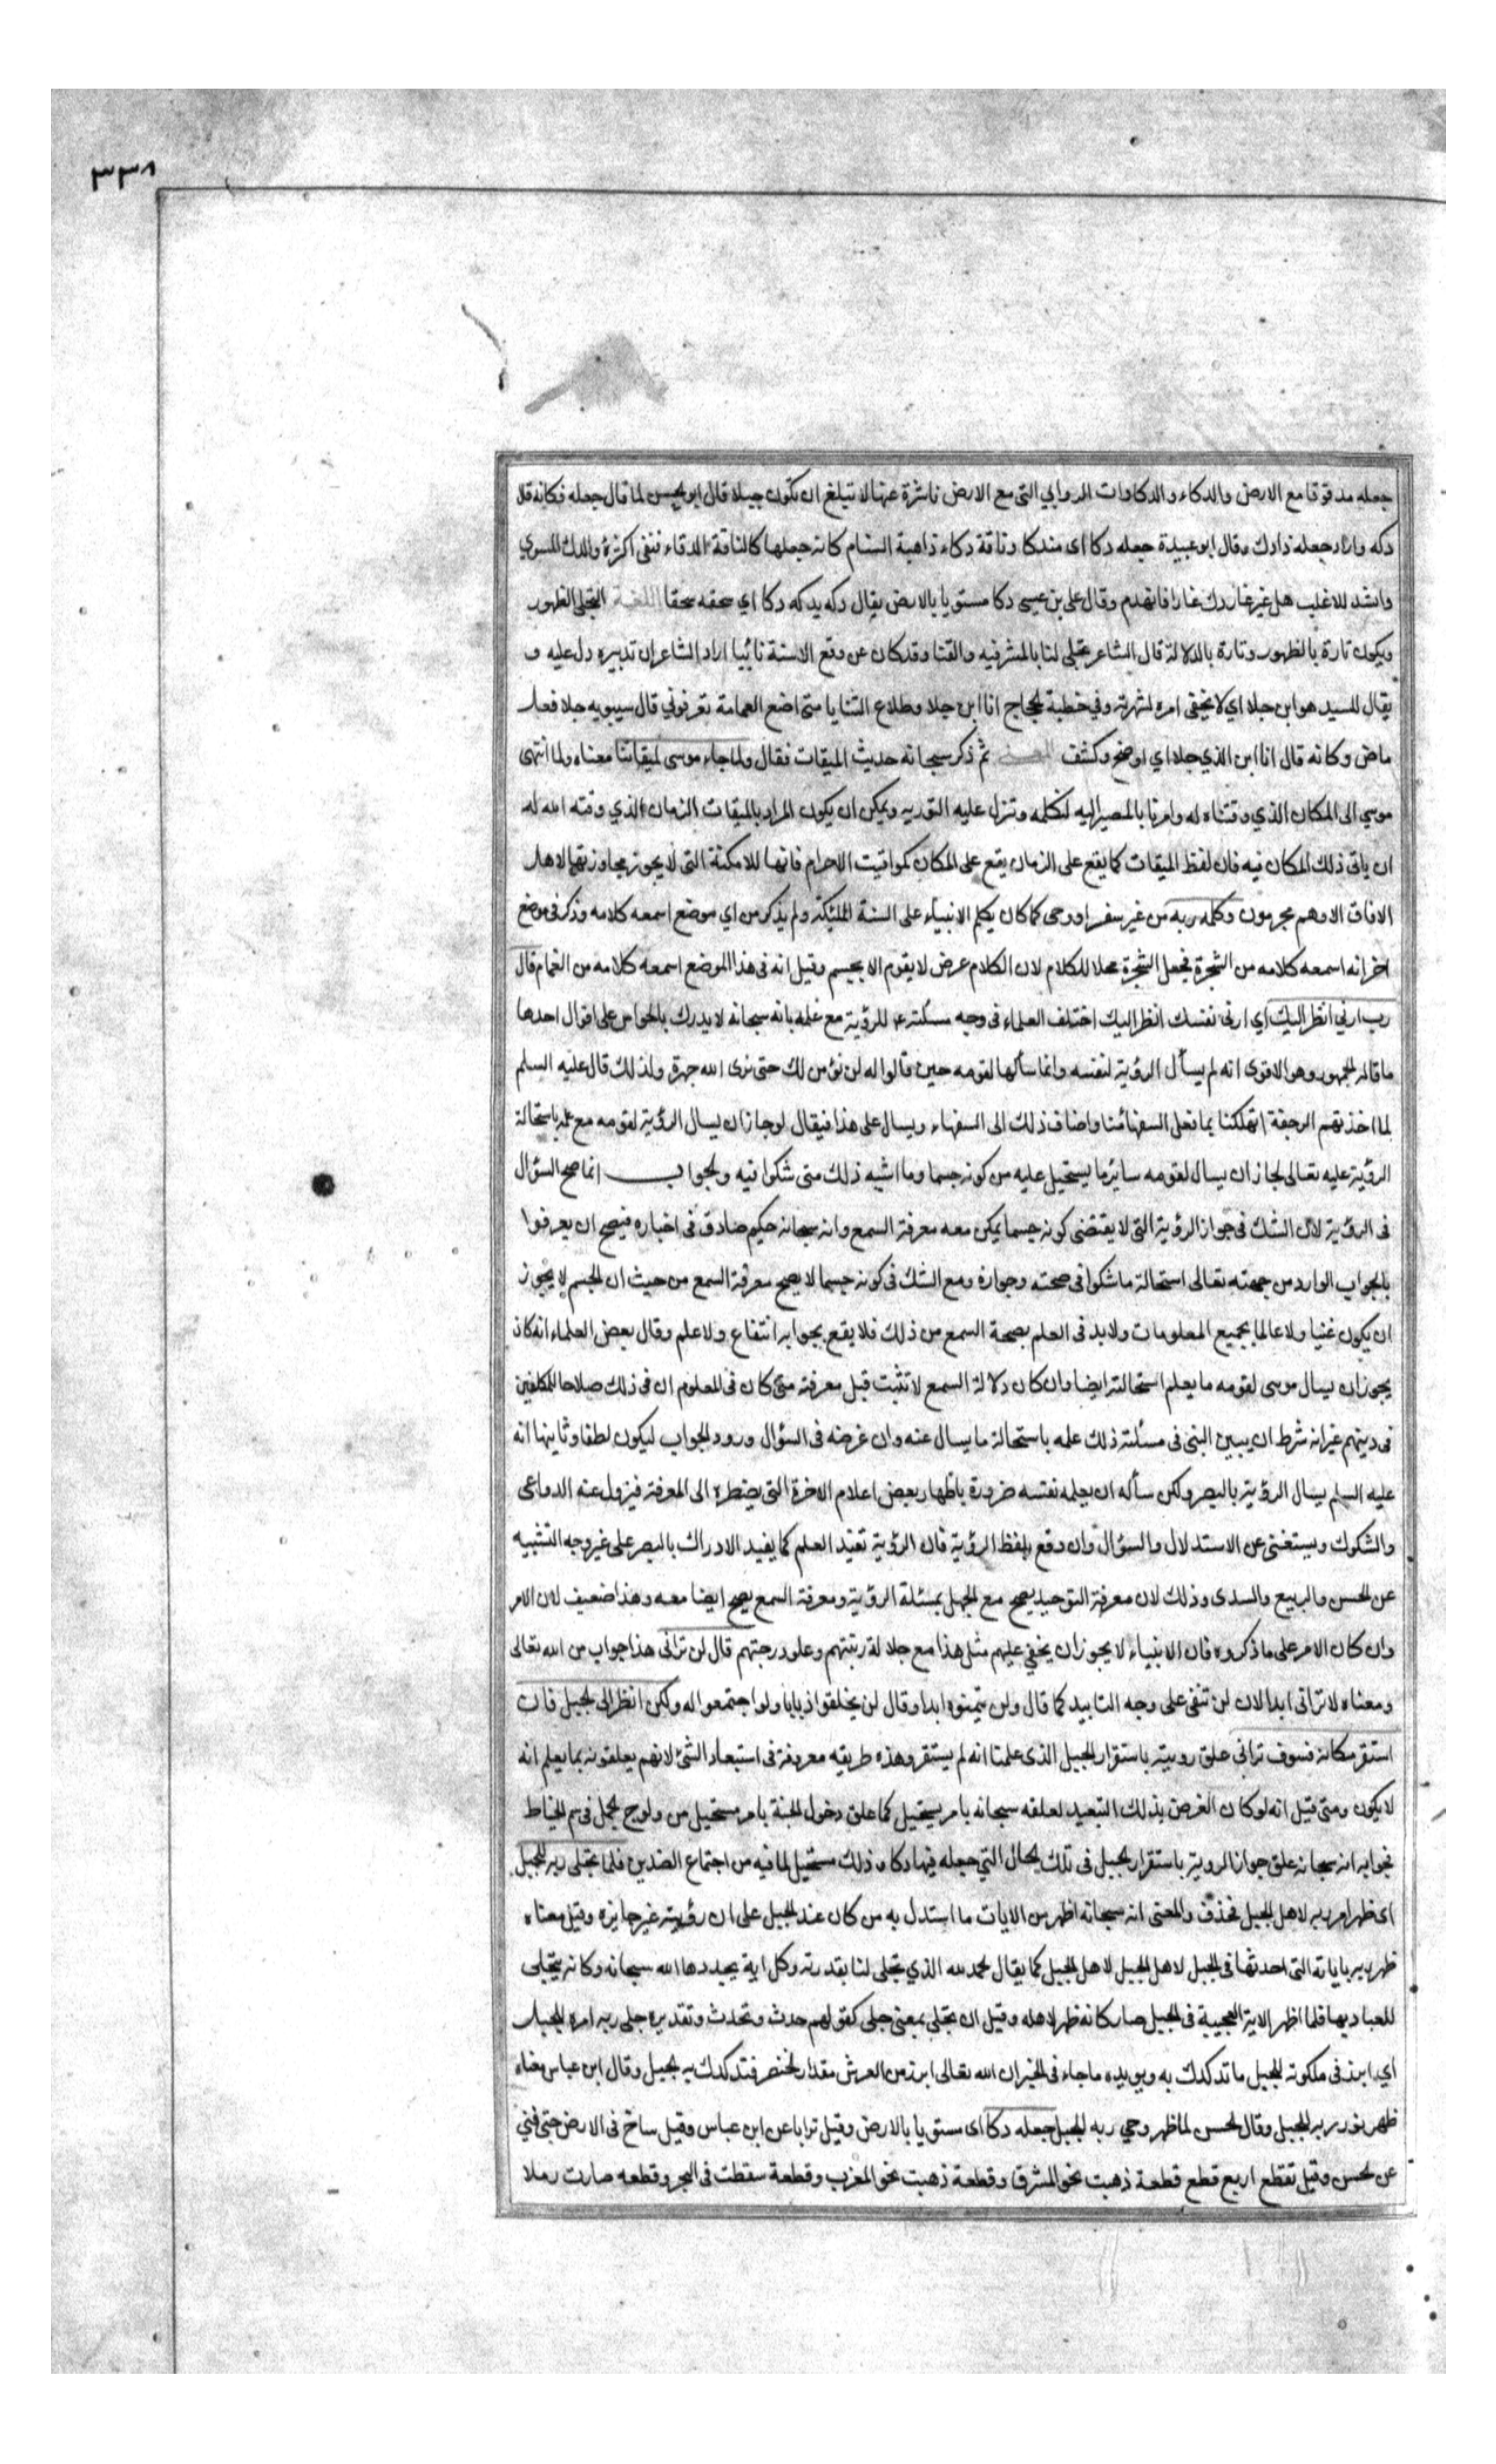 ٣٣٨
جعله مدقوقا مع الارض والدكاء والدكاوات الروابي التي مع الارض ناشزة عنها لا تبلغ ان تكون جبلا قال ابو الحسن لما قال جعله فكانه قال
دكه واراد جعله ذا دك وقال ابو عبيدة جعله دكا اى مندكا وناقة دكاء ذاهبة السنام كانه جعلها كالناقة الدكاء فنفى اكثره والدك المستوي
وانشد للاغلب هل غير غار دك غارا فانهدم وقال على بن عيسى دكا مستويا بالارض يقال دكه يدكه دكا اي سحقه سحقا اللغة التجلى الظهور
ويكون تارة بالظهور وتارة بالدلالة قال الشاعر تجلى لنا بالمشرفيه والقنا وقد كان عن وقع الاسنة نائيا اراد الشاعر ان تدبيره دل عليه و
يقال للسيد هو ابن جلا اي لا يخفى امره لشهرته وفي خطبة الحجاج انا ابن جلا وطلاع الثنايا متى اضع العمامة تعرفوني قال سيبويه جلا فعل
ماض وكانه قال انا ابن الذي جلا اي اوضح وكشف المعنى ثم ذكر سبحانه حديث الميقات فقال ولما جاء موسى لميقاتنا معناه ولما انتهى
موسي الى المكان الذي وقتناه له وامرنا بالمصير اليه لنكلمه وتنزل عليه التورية ويمكن ان يكون المراد بالميقات الزمان الذي وقته الله له
ان ياتى ذلك المكان فيه فان لفظ الميقات كما يقع على الزمان يقع على المكان كمواقيت الاحرام فانها للامكنة التى لا يجوز مجاوزتها لاهل
الافاق الا وهم محرمون وكلمه ربه من غير سفير او وحى كما كان يكلم الانبياء على السنة الملئكة ولم يذكر من اي موضع اسمعه كلامه وذكر فى موضع
اخر انه اسمعه كلامه من الشجرة فجعل الشجرة محلا للكلام لان الكلام عرض لا يقوم الا بجسم وقيل انه فى هذا الموضع اسمعه كلامه من الغمام قال
رب ارني انظر اليك اي ارنى نفسك انظر اليك اختلف العلماء فى وجه مسئلته ع للرؤية مع علمه بانه سبحانه لا يدرك بالحواس على اقوال احدها
ما قاله الجمهور وهو الاقوى انه لم يسأل الرؤية لنفسه وانما سألها لقومه حين قالوا له لن نؤمن لك حتى نرى الله جهرة ولذلك قال عليه السلم
لما اخذتهم الرجفة اتهلكنا بما فعل السفهاء منا واضاف ذلك الى السفهاء ويسال على هذا فيقال لو جاز ان يسال الرؤية لقومه مع علمه باستحالة
الرؤية عليه تعالى لجاز ان يسال لقومه سائر ما يستحيل عليه من كونه جسما وما اشبه ذلك متى شكوا فيه والجواب انما صح السؤال
فى الرؤية لان الشك فى جواز الرؤية التى لا يقتضى كونه جسما يمكن معه معرفة السمع وانه سبحانه حكيم صادق فى اخباره فيصح ان يعرفوا
بالجواب الوارد من جهته تعالى استحالة ما شكوا فى صحته وجوازه ومع الشك فى كونه جسما لا يصح معرفة السمع من حيث ان الجسم لا يجوز
ان يكون غنيا ولا عالما بجميع المعلومات ولا بد فى العلم بصحة السمع من ذلك فلا يقع بجوابه انتفاع ولا علم وقال بعض العلماء انه كان
يجوز ان يسال موسى لقومه ما يعلم استحالته ايضا وان كان دلالة السمع لا تثبت قبل معرفته متى كان فى المعلوم ان فى ذلك صلاحا للمكلفين
فى دينهم غير انه شرط ان يبين النبى فى مسئلته ذلك علمه باستحالة ما يسال عنه وان غرضه فى السؤال ورود الجواب ليكون لطفا وثانيها انه
عليه السلم يسال الرؤية بالبصر ولكن سأله ان يعلمه نفسه ضرورة باظهار بعض اعلام الاخرة التى يضطره الى المعرفة فيزول عنه الدواعى
والشكوك ويستغنى عن الاستدلال والسؤال وان وقع بلفظ الرؤية فان الرؤية تفيد العلم كما يفيد الادراك بالبصر على غير وجه التشبيه
عن الحسن والربيع والسدى وذلك لان معرفة التوحيد يصح مع الجهل بمسئلة الرؤية ومعرفة السمع يصح ايضا معه وهذا ضعيف لان الامر
وان كان الامر على ما ذكروه فان الانبياء لا يجوز ان يخفي عليهم مثل هذا مع جلالة رتبتهم وعلو درجتهم قال لن ترانى هذا جواب من الله تعالى
ومعناه لا ترانى ابدا لان لن تنفى على وجه التابيد كما قال ولن يتمنوه ابدا وقال لن يخلقوا ذبابا ولو اجتمعوا له ولكن انظر الى الجبل فان
استقر مكانه فسوف تراني علق رويته باستقرار الجبل الذى علمنا انه لم يستقر وهذه طريقه معروفة فى استبعاد الشئ لانهم يعلقونه بما يعلم انه
لا يكون ومتى قيل انه لو كان الغرض بذلك التبعيد لعلقه سبحانه بامر يستحيل كما علق دخول الجنة بامر مستحيل من ولوج الجمل فى سم الخياط
فجوابه انه سبحانه علق جواز الروية باستقرار الجبل فى تلك الحال التي جعله فيها دكا وذلك مستحيل لما فيه من اجتماع الضدين فلما تجلى ربه للجبل
اى ظهر امر ربه لاهل الجبل فحذف والمعنى انه سبحانه اظهر من الايات ما استدل به من كان عند الجبل على ان رؤيته غير جايزه وقيل معناه
ظهر ربه باياته التى احدثها فى الجبل لاهل الجبل لاهل الجبل كما يقال الحمد لله الذي تجلى لنا بقدرته وكل اية يجددها الله سبحانه وكانه يتجلى
للعباد بها فلما اظهر الاية العجيبة فى الجبل صار كانه ظهر لاهله وقيل ان تجلى بمعنى جلى كقولهم حدث وتحدث وتقديره جلى ربه امره للجبل
أي ابرز فى ملكوته للجبل ما تدكدك به ويويده ما جاء فى الخبر ان الله تعالى ابرز من العرش مقدار الخنصر فتدكدك به الجبل وقال ابن عباس معناه
ظهر نور ربه للجبل وقال الحسن لما ظهر وحي ربه للجبل جعله دكا اى مستويا بالارض وقيل ترابا عن ابن عباس وقيل ساخ فى الارض حتى فني
عن الحسن وقيل تقطع اربع قطع قطعة ذهبت نحو المشرق وقطعة ذهبت نحو المغرب وقطعة سقطت فى البحر وقطعه صارت رملا